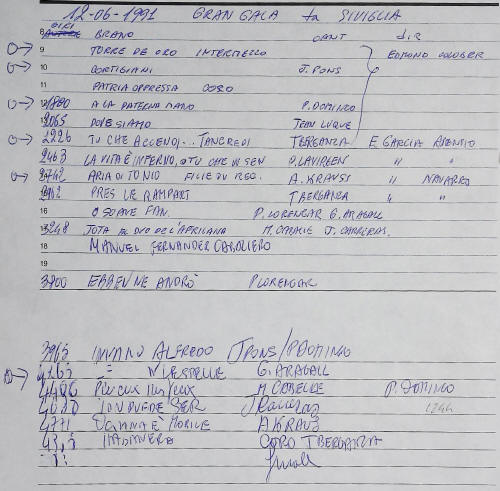 12-06-1991 GRAN GALA da SIVIGLIA
8 GIRI BRANO CANT dir
9 TORRE DE ORO INTERMEZZO EDMOND COLOMER
10 CORTIGIANI J. PONS
11 PATRIA OPPRESSA CORO
A LA PATERNA MANO P. DOMINGO
2065 DOVE SIAMO JEAN LUQUE
2226 TU CHE ACCENDI... TANCREDI TERGANZA E. GARCIA ASENSIO
2463 LA VITA È INFERNO, O TU CHE IN SEN " "
ARIA DI TONIO FILIE DU REG. A. KRAUS " NAVARRO
PRES LE RAMPART T BERGANZA " "
16 O SOAVE FAN. P. LORENGAR G. ARAGALL
3248 JOTA DE DUO DE L'AFRICANA M. CABALLE J. CARRERAS
18 MANUEL FERNANDER CABALLERO
19
3700 EBBEN NE ANDRÒ P LORENGAR
3965 INVANO ALFREDO J PONS / P DOMINGO
4265 " " W LESTELLE G. ARAGALL
M. CABALLE P. DOMINGO
NO PUEDE SER J Carreras
4771 DONNA È MOBILE A KRAUS
HABANERA CORO T BERGANZA